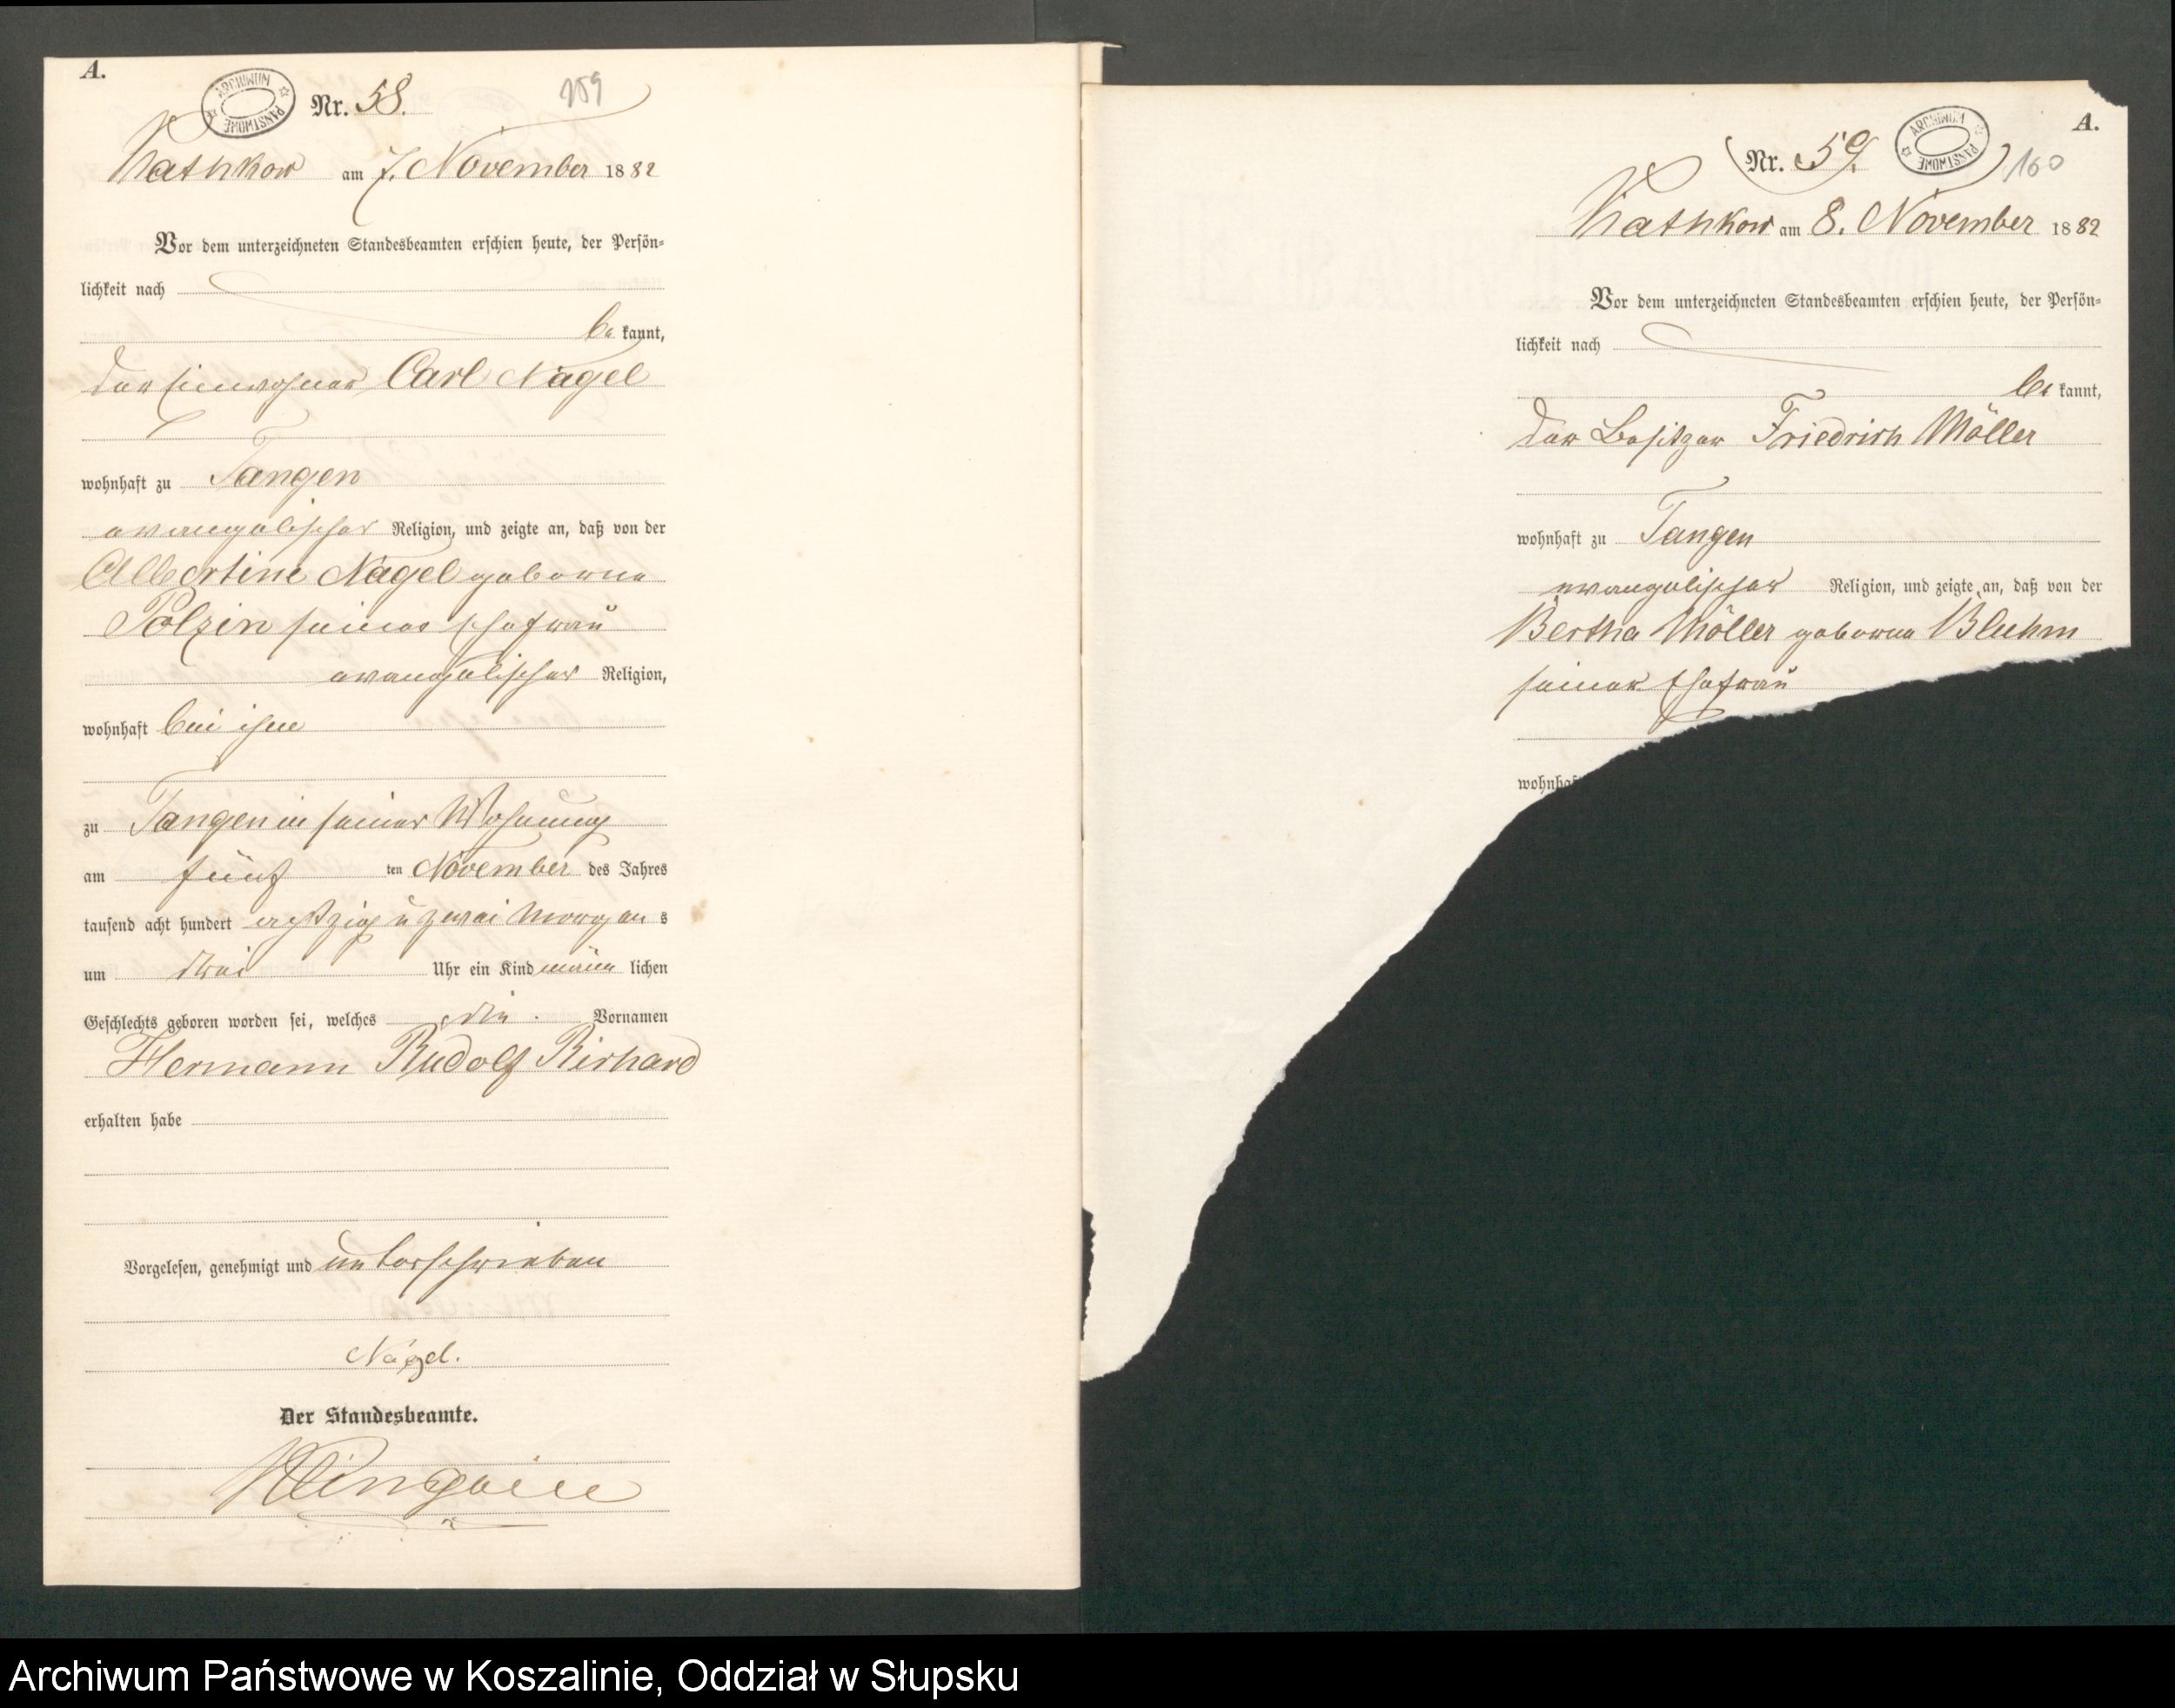 A.
ARCHIWUM PAŃSTWOWE
Nr. 58.
159
Kathkow am 7. November 1882
Vor dem unterzeichneten Standesbeamten erschien heute, der Persön-
lichkeit nach
be kannt,
der Einwohner Carl Nagel
wohnhaft zu Tangen
evangelischer Religion, und zeigte an, daß von der
Albertine Nagel geborne
Polzin seiner Ehefrau
evangelischer Religion,
wohnhaft bei ihm
zu Tangen in seiner Wohnung
am fünf ten November des Jahres
tausend acht hundert achtzig u zwei Morgen s
um drei Uhr ein Kind männ lichen
Geschlechts geboren worden sei, welches die Vornamen
Hermann Rudolf Richard
erhalten habe
Vorgelesen, genehmigt und unterschrieben
Nagel.
Der Standesbeamte.
A.
ARCHIWUM PAŃSTWOWE
Nr. 59.
160
Kathkow am 8. November 1882
Vor dem unterzeichneten Standesbeamten erschien heute, der Persön-
lichkeit nach
be kannt,
der Besitzer Friedrich Möller
wohnhaft zu Tangen
evangelischer Religion, und zeigte an, daß von der
Bertha Möller geborne Bluhm
seiner Ehefrau
wohnhaf
Archiwum Państwowe w Koszalinie, Oddział w Słupsku